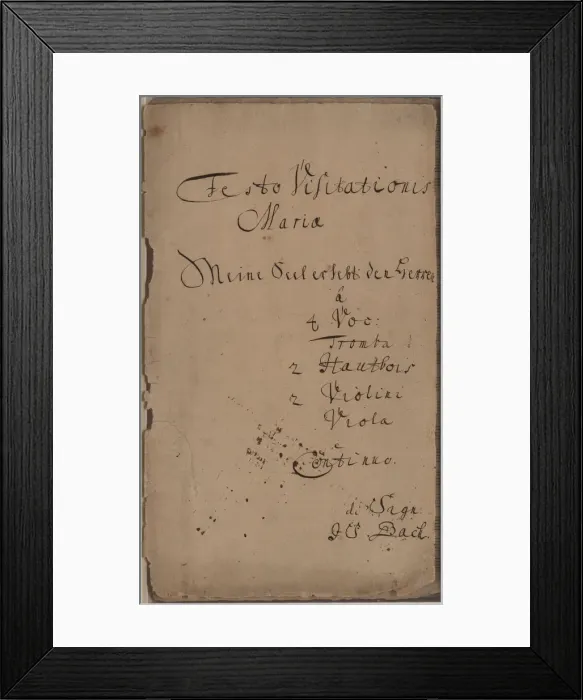 Festo Visitationis
Mariæ
Meine Seel erhebt den Herren
â
4 Voc:
Tromba 1
2 Hautbois
2 Violini
Viola
e
Continuo.
di Sign
JS Bach.